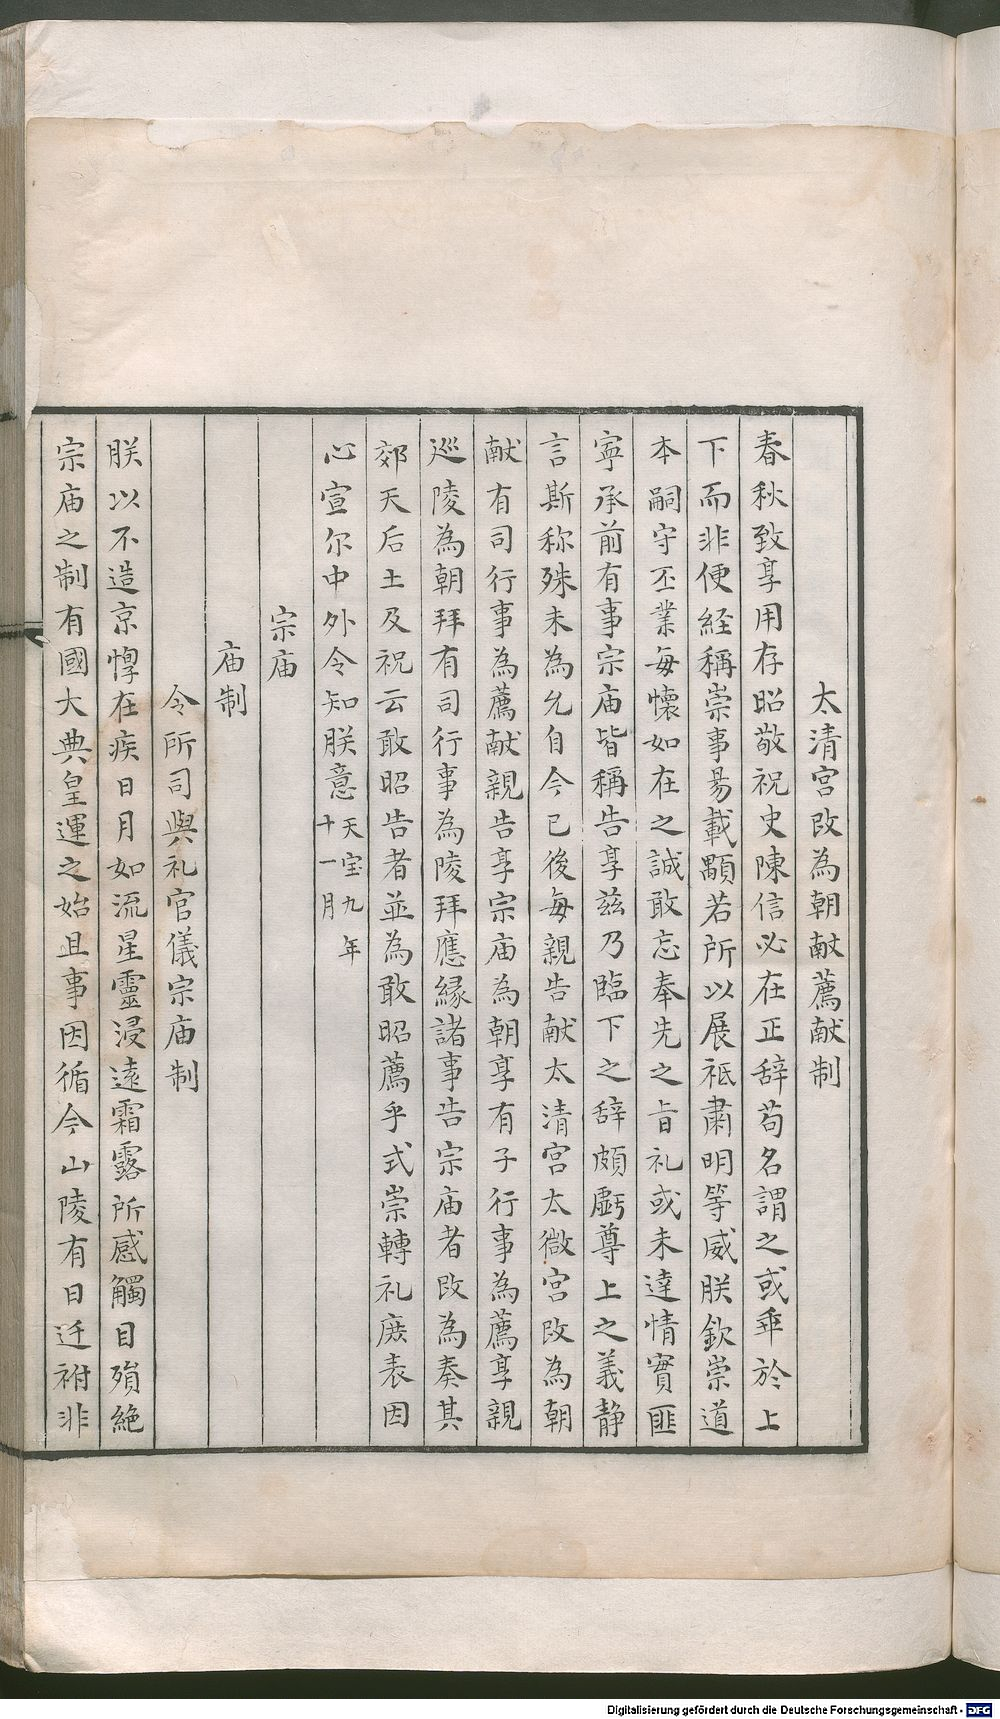 太清宮改為朝献薦献制
春秋致享用存昭敬祝史陳信必在正辞苟名謂之或乖於上
下而非便経稱崇事昜載顒若所以展祗肅明等威朕欽崇道
本嗣守丕業毎懐如在之誠敢忘奉先之旨礼或未達情實匪
寧承前有事宗庙皆稱告享兹乃臨下之辞頗虧尊上之義静
言斯称殊未為允自今已後毎親告献太清宮太微宮改為朝
献有司行事為薦献親告享宗庙為朝享有子行事為薦享親
巡陵為朝拜有司行事為陵拜應縁諸事告宗庙者改為奏其
郊天后土及祝云敢昭告者並為敢昭薦乎式崇轉礼庶表因
心宣尔中外令知朕意天宝九年
十一月
宗庙
庙制
令所司與礼官儀宗庙制
朕以不造京惸在疾日月如流星靈浸遠霜露所感觸目殞絶
宗庙之制有國大典皇運之始且事因循今山陵有日迁祔非
Digitalisierung gefördert durch die Deutsche Forschungsgemeinschaft - DFG